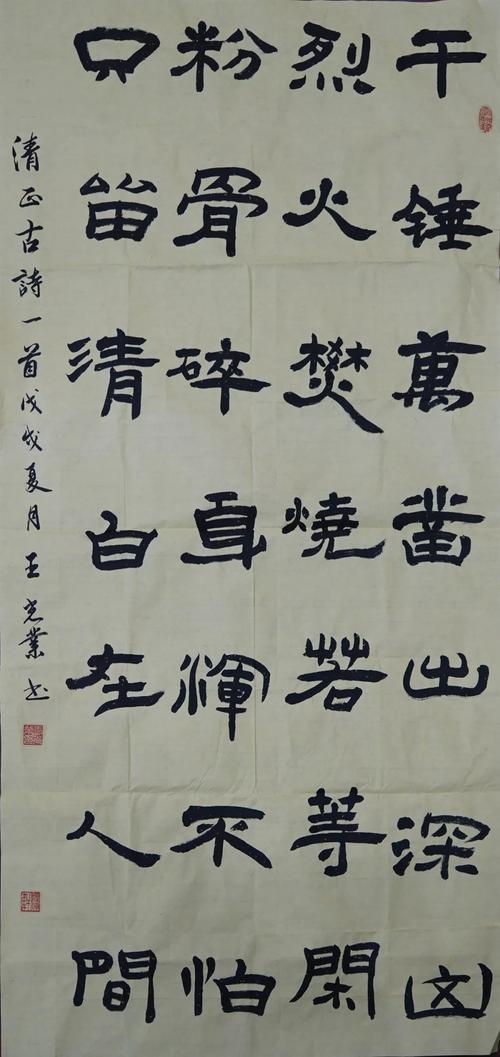 千锤萬凿出深山
烈火焚燒若等閑
粉骨碎身渾不怕
只留清白在人間
清正古詩一首戊戌夏月王業书